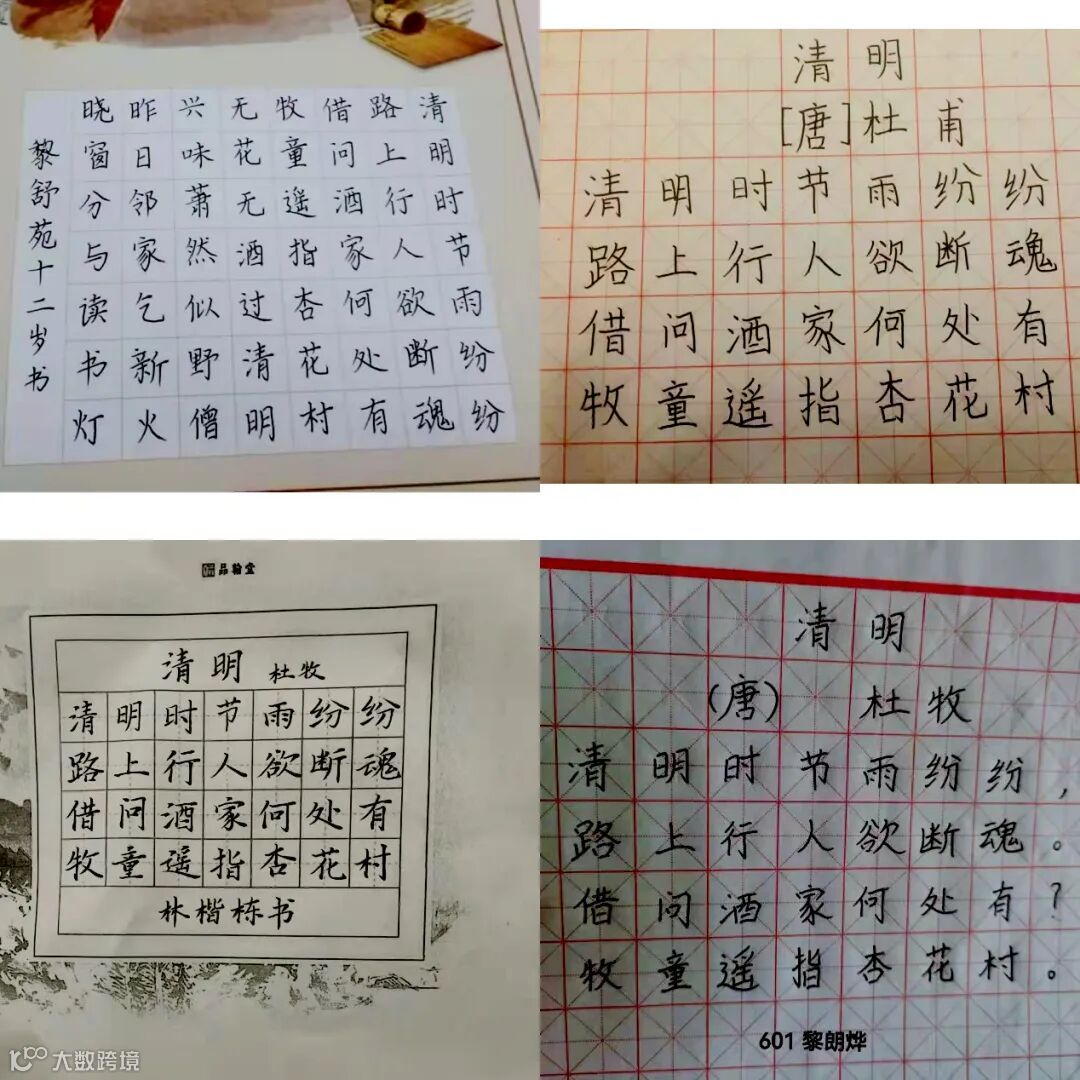 清明时节雨纷纷
路上行人欲断魂
借问酒家何处有
牧童遥指杏花村
无花无酒过清明
兴味萧然似野僧
昨日邻家乞新火
晓窗分与读书灯
黎舒苑十二岁书
清明
[唐]杜甫
清明时节雨纷纷
路上行人欲断魂
借问酒家何处有
牧童遥指杏花村
品翰堂
清明 杜牧
清明时节雨纷纷
路上行人欲断魂
借问酒家何处有
牧童遥指杏花村
林楷栋书
清明
(唐) 杜牧
清明时节雨纷纷，
路上行人欲断魂。
借问酒家何处有？
牧童遥指杏花村。
601 黎朗烨
大数跨境